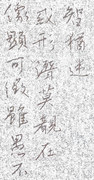 像顯可徵雖愚不
或形潛莫覩在
智猶迷